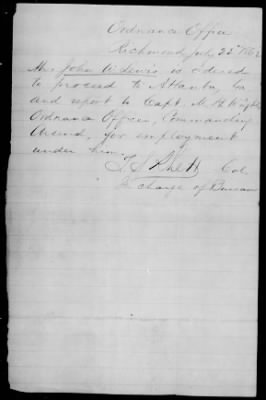 Ordnance Office
Richmond July 22nd 1862
Mr John W. Lewis is ordered
to proceed to Atlanta, Ga
and report to Capt. M. H. Wright
Ordnance Officer, Commanding
Arsenal, for employment
under him.
T. S. Rhett Col.
In charge of Bureau